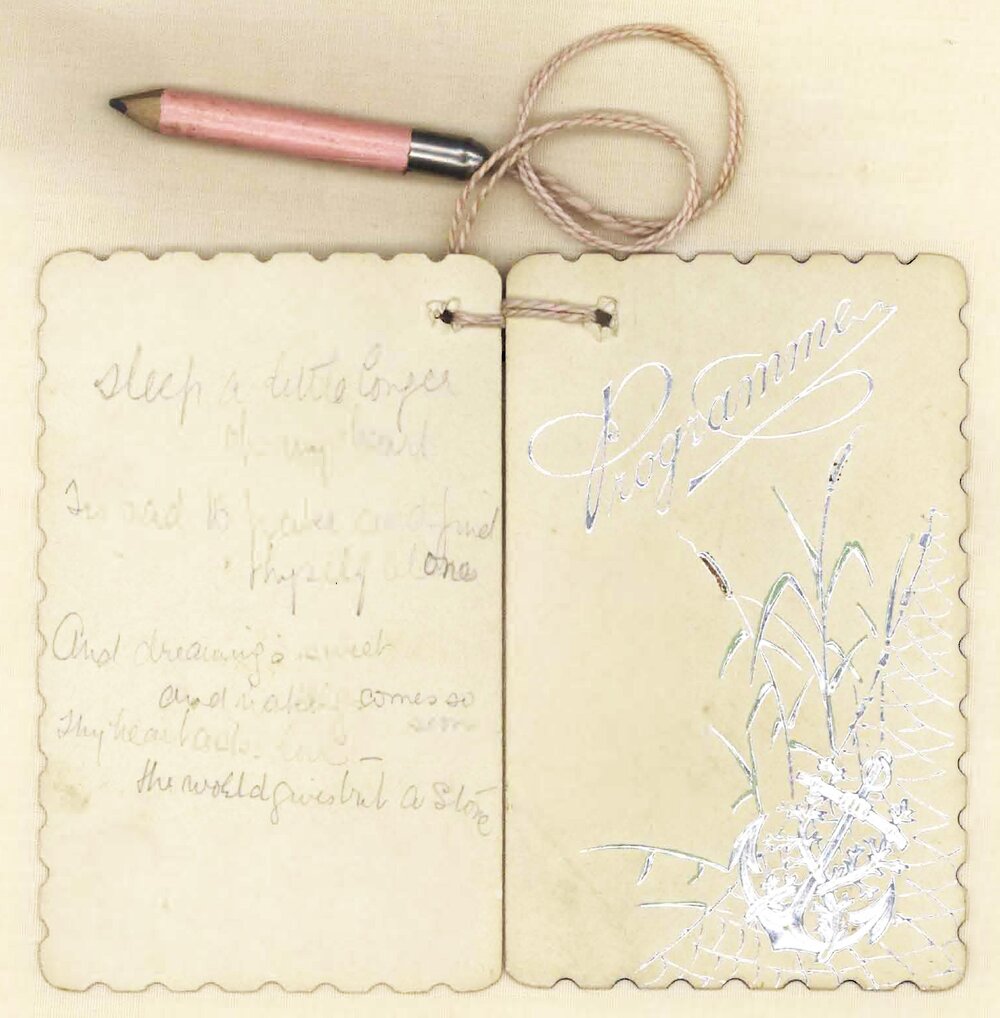 Sleep a little longer
Oh my heart
Tis sad to wake and find
thyself alone
And dreaming's sweet
and waking comes so
soon
Thy heart asks love –
the world gives but a Stone
Programme